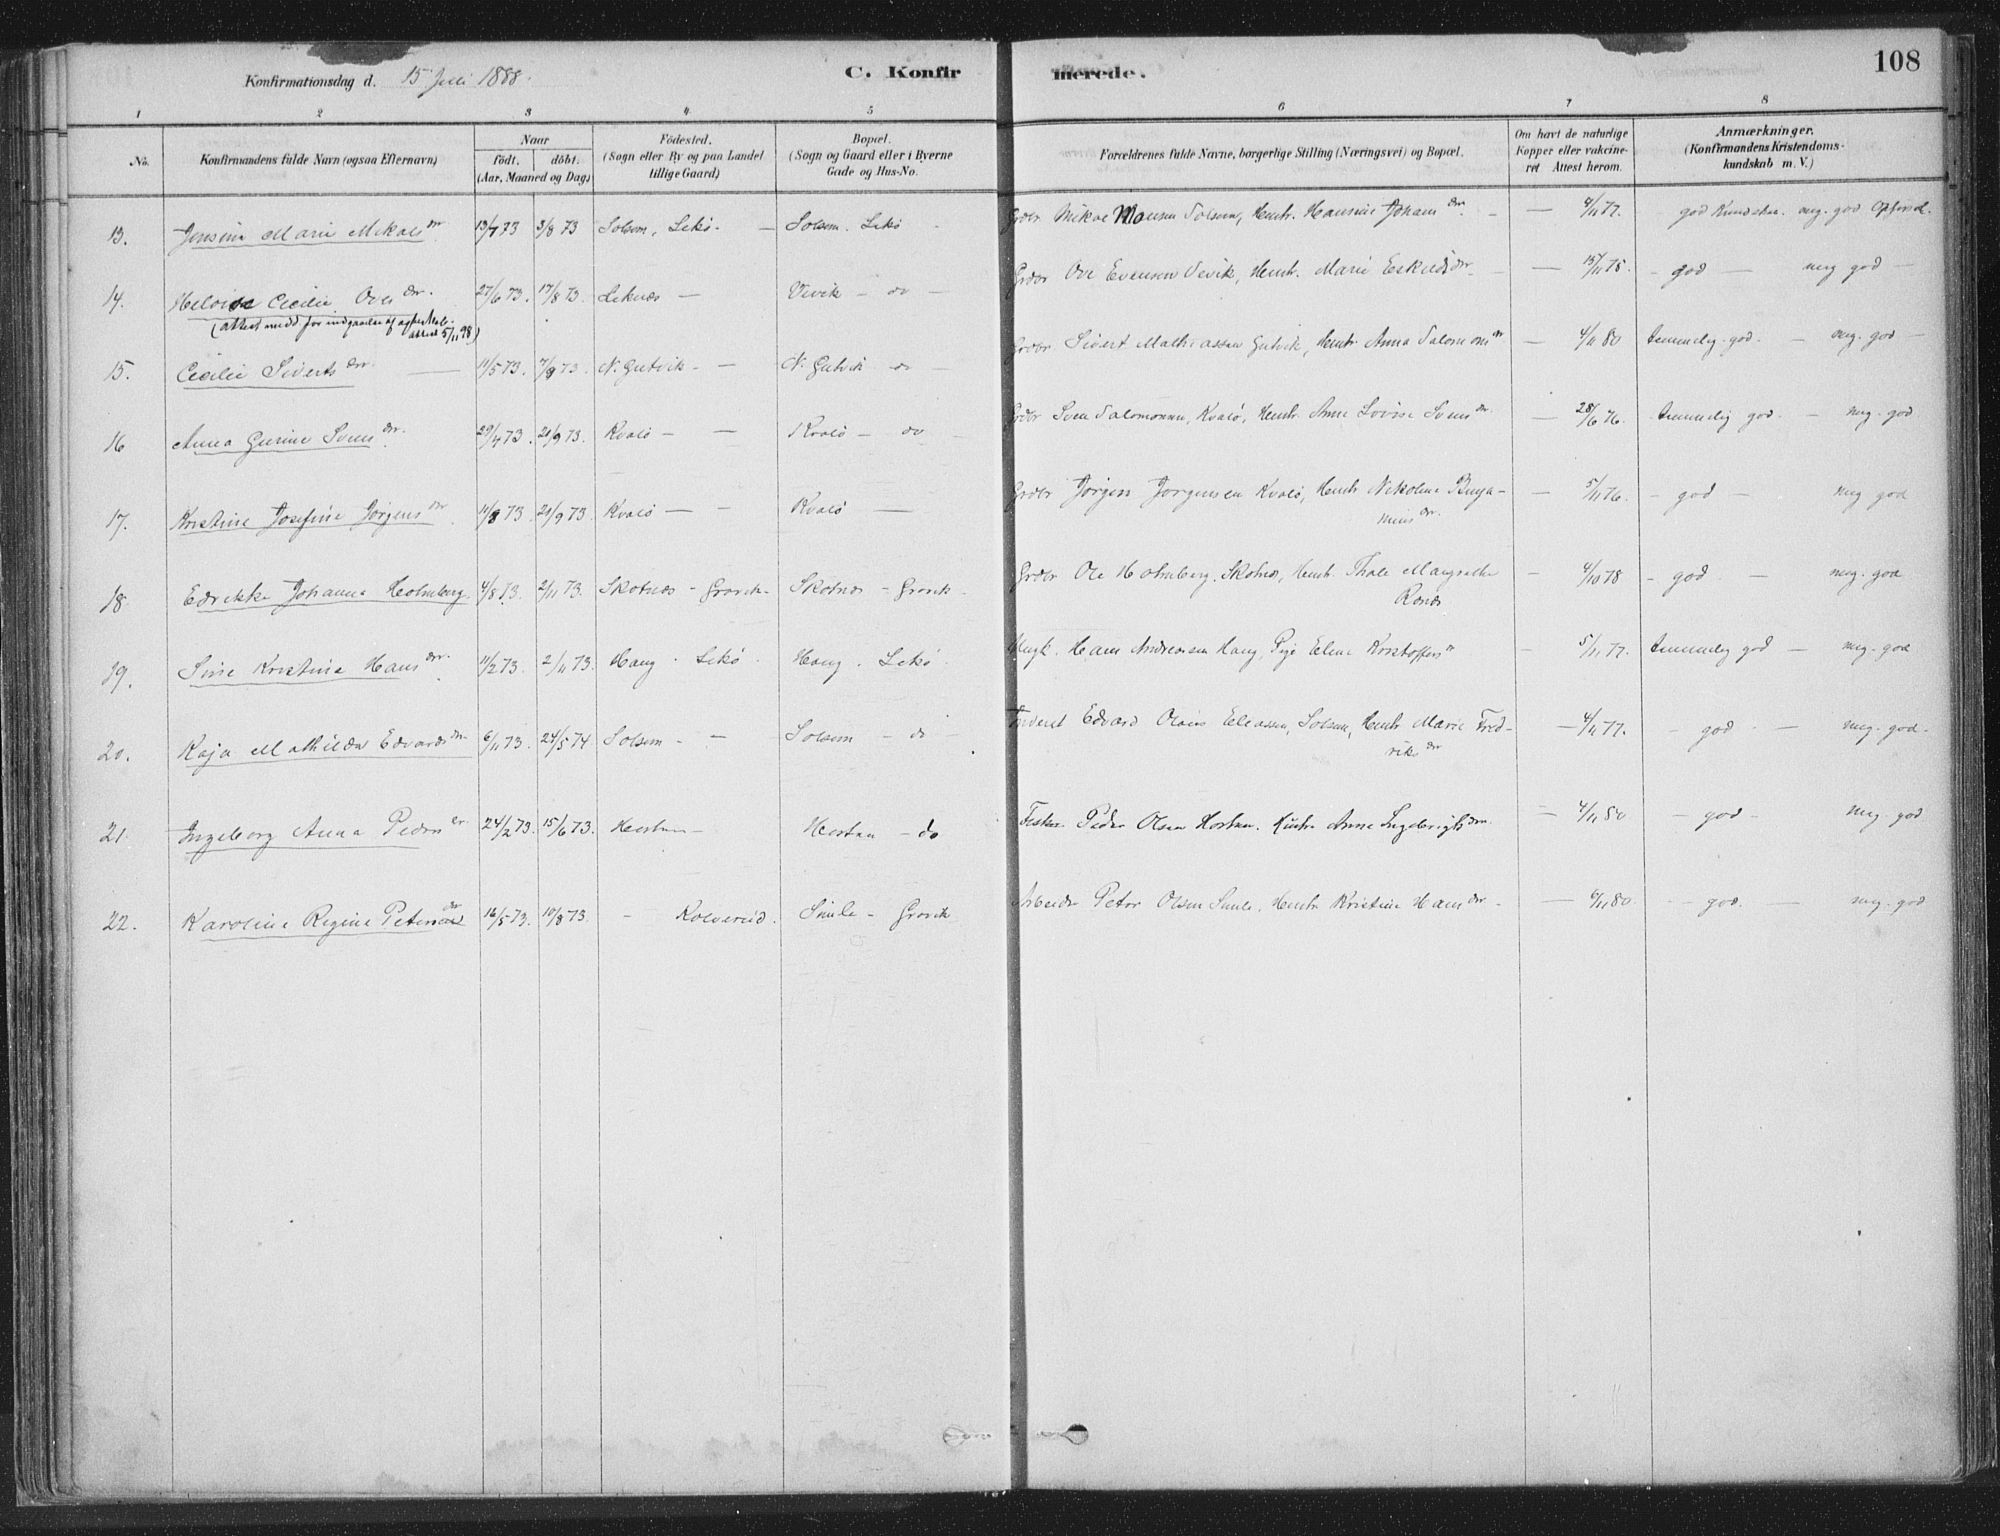 108
Konfirmationsdag d. 15 Juli 1888.
C. Konfirmerede.
1 2 3 4 5 6 7 8
No. Konfirmandens fulde Navn (ogsaa Efternavn) Naar födt. döbt. (Aar, Maaned og Dag) Födested. (Sogn eller By og paa Landet tillige Gaard) Bopæl. (Sogn og Gaard eller i Byerne Gade og Hus-No. Forældrenes fulde Navne, borgerlige Stilling (Næringsvei) og Bopæl. Om havt de naturlige Kopper eller vakcineret Attest herom. Anmærkninger. (Konfirmandens Kristendomskundskab m. V.)
13. Jensine Marie Mikals dr 13/7 73 3/8 73 Solsem, Lekö - — Solsem. Lekö Grdbr Mikal Monsen Solsem, Hustr. Johans dr. — 4/11 77. god Kundskab. meg. god Opförsel.
14. Cecilie Oves dr. 27/6 73. 17/8 73. Leknæs — Vevik — do — Grdbr Ove Evensen Vevik, Hustr. Marie Eskilds dr. — 15/11 75. - god — meg god —
(attest medd for indgaaelse af 5/11 98)
15. Cecilie Siverts dr. — 11/5 73. 7/9 73. N. Gutvik - — N. Gutvik do — Grdbr Sivert Mathiassen Gutvik, Hustr Anna Salomons dr — 4/11 80 temmelig god. — meg. god —
16 Anna Gurine Svens dr. 29/4 73. 21/9 73. Kvalö — — Kvalö — do — Grdbr Sven Salomonsen, Kvalö, Hustr. Anne Lovise Svens dr. — 28/6 76. temmelig god — meg. god
17. Kristine Josefine Jörgens dr. 11/8 73. 21/9 73. Kvalö — — Kvalö — Grdbr Jörgen Jörgensen Kvalö, Hustr Nikoline Benja-
mins dr. — 5/11 76. - god — meg god
18. Edrikke Johanna Holmberg. 4/8 73. 2/11 73. Skotnæs - Gravik - Skotnæs - Gravik - Grdbr Ole Holmberg. Skotnæs, Hustr. Thale Margrethe — 4/10 78 - god — meg. god
19. Sine Kristine Hans dr. 11/2 73. 2/11 73. Haug. Lekö. Haug. Lekö. Ungk. Hans Andreassen Haug, Pige Elene Kristoffers dr — 5/11 77. temmelig god — meg. god
20. Kaja Mathilde Edvards dr 6/11 73. 24/5 74 Solsem - — Solsem - do — Edvard Olaus Eliassen, Solsem, Hustr. Marie Fred-
riks dr — 4/11 77. - god - — meg. god.
21. Ingeborg Anna Peders dr. 24/2 73. 15/6 73. Horstan — Horstan — do Fisker Peder Olsen Horstan. Hustr Anne Ingebrigts dr. — 4/11 80 - god - — meg. god
22. Karoline Regine Peters dr 16/5 73. 10/8 73. - Kolvereid. Simle - Gravik Arbeider Peter Olsen Simle, Hustr Kristine Hans dr - — 6/11 80. - god. — meg. god